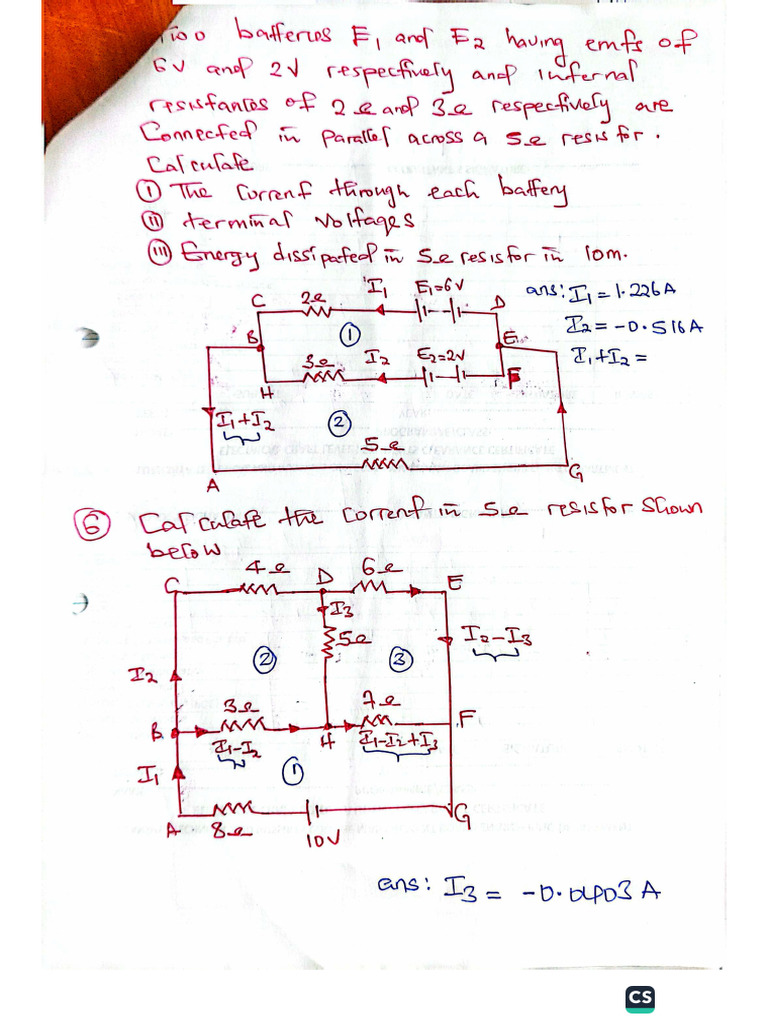 Two batteries E1 and E2 having emfs of
6V and 2V respectively and internal
resistances of 2Ω and 3Ω respectively are
Connected in parallel across a 5Ω resistor.
Calculate
(i) The Current through each battery
(ii) terminal Voltages
(iii) Energy dissipated in 5Ω resistor in 10m.
ans: I1 = 1.226A
I2 = -0.516A
I1+I2 =
C 2Ω I1 E1=6V D
B 1 E
3Ω I2 E2=2V F
H
I1+I2 2
5Ω
A G
6 Calculate the current in 5Ω resistor shown
below
4Ω D 6Ω
C E
I3
5Ω I2-I3
2 3
I2
3Ω 7Ω
B H F
I1-I2 I1-I2+I3
1
I1
A 8Ω 10V G
ans: I3 = -0.0403A
CS